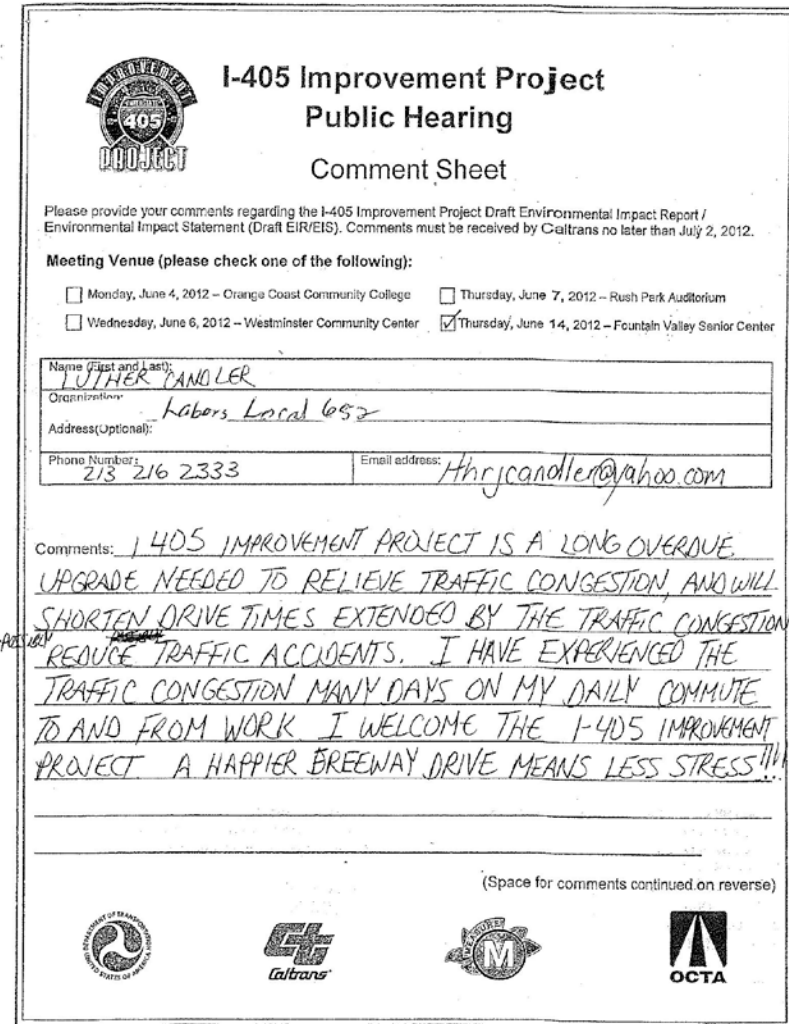 IMPROVEMENT
INTERSTATE
405
PROJECT
I-405 Improvement Project
Public Hearing
Comment Sheet
Please provide your comments regarding the I-405 Improvement Project Draft Environmental Impact Report /
Environmental Impact Statement (Draft EIR/EIS). Comments must be received by Caltrans no later than July 2, 2012.
Meeting Venue (please check one of the following):
Monday, June 4, 2012 – Orange Coast Community College
Thursday, June 7, 2012 – Rush Park Auditorium
Wednesday, June 6, 2012 – Westminster Community Center
Thursday, June 14, 2012 – Fountain Valley Senior Center
Name (First and Last):
LUTHER CANDLER
Organization:
Labors Local 652
Address(Optional):
Phone Number:
213 216 2333
Email address:
lthrjcandler@yahoo.com
Comments: I 405 IMPROVEMENT PROJECT IS A LONG OVERDUE
UPGRADE NEEDED TO RELIEVE TRAFFIC CONGESTION, AND WILL
SHORTEN DRIVE TIMES EXTENDED BY THE TRAFFIC CONGESTION
POSSIBLY REDUCE TRAFFIC ACCIDENTS. I HAVE EXPERIENCED THE
TRAFFIC CONGESTION MANY DAYS ON MY DAILY COMMUTE
TO AND FROM WORK I WELCOME THE I-405 IMPROVEMENT
PROJECT A HAPPIER FREEWAY DRIVE MEANS LESS STRESS!!!!
(Space for comments continued on reverse)
DEPARTMENT OF TRANSPORTATION
UNITED STATES OF AMERICA
Caltrans
MEASURE
M
OCTA